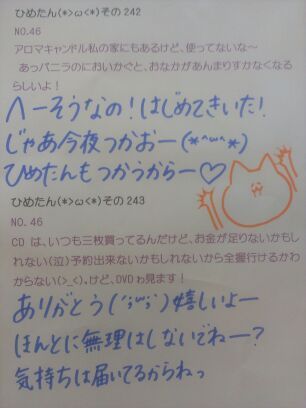 ひめたん(*>ω<*)その242
NO.46
アロマキャンドル私の家にもあるけど、使ってないな～
あっバニラのにおいかぐと、おなかがあんまりすかなくなる
らしいよ！
へーそうなの！はじめてきいた！
じゃあ今夜つかおー(*^ω^*)
ひめたんもつかうからー♡
ひめたん(*>ω<*)その243
NO.46
CDは、いつも三枚買ってるんだけど、お金が足りないかもし
れない(泣)予約出来ないかもしれないから全握行けるかわ
からない(>_<)。けど、DVDゎ見ます！
ありがとう(´;ω;`)嬉しいよー
ほんとに無理はしないでねー？
気持ちは届いてるからねっ